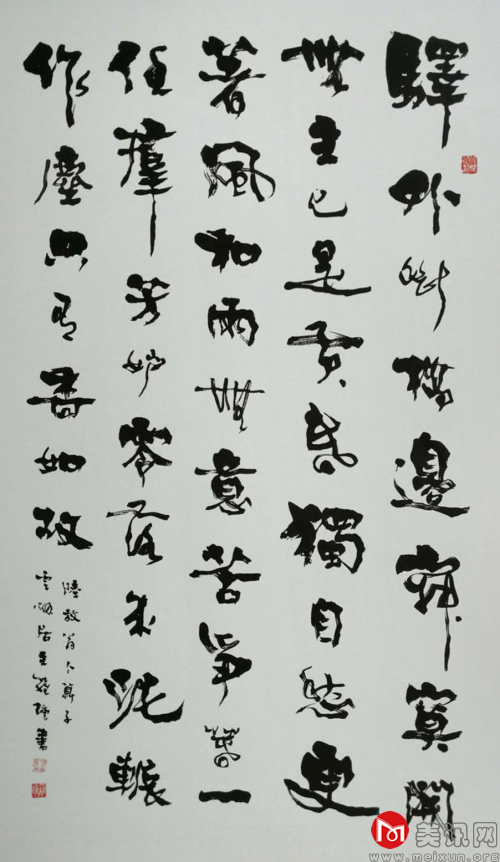 驛外断橋邊寂寞開
無主已是黃昏獨自愁更
著風和雨無意苦爭春一
任羣芳妒零落成泥輾
作塵只有香如故
陸放翁卜算子
居主書
美讯网
www.meixun.org